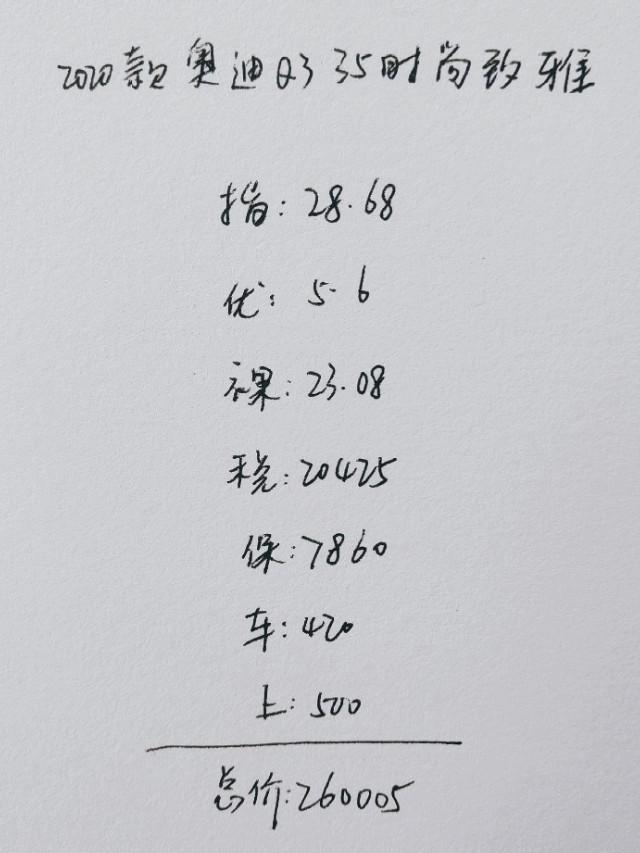 2020款奥迪Q3 35时尚致雅
指:28.68
优:5.6
裸:23.08
税:20425
保:7860
车:420
上:500
总价:260005